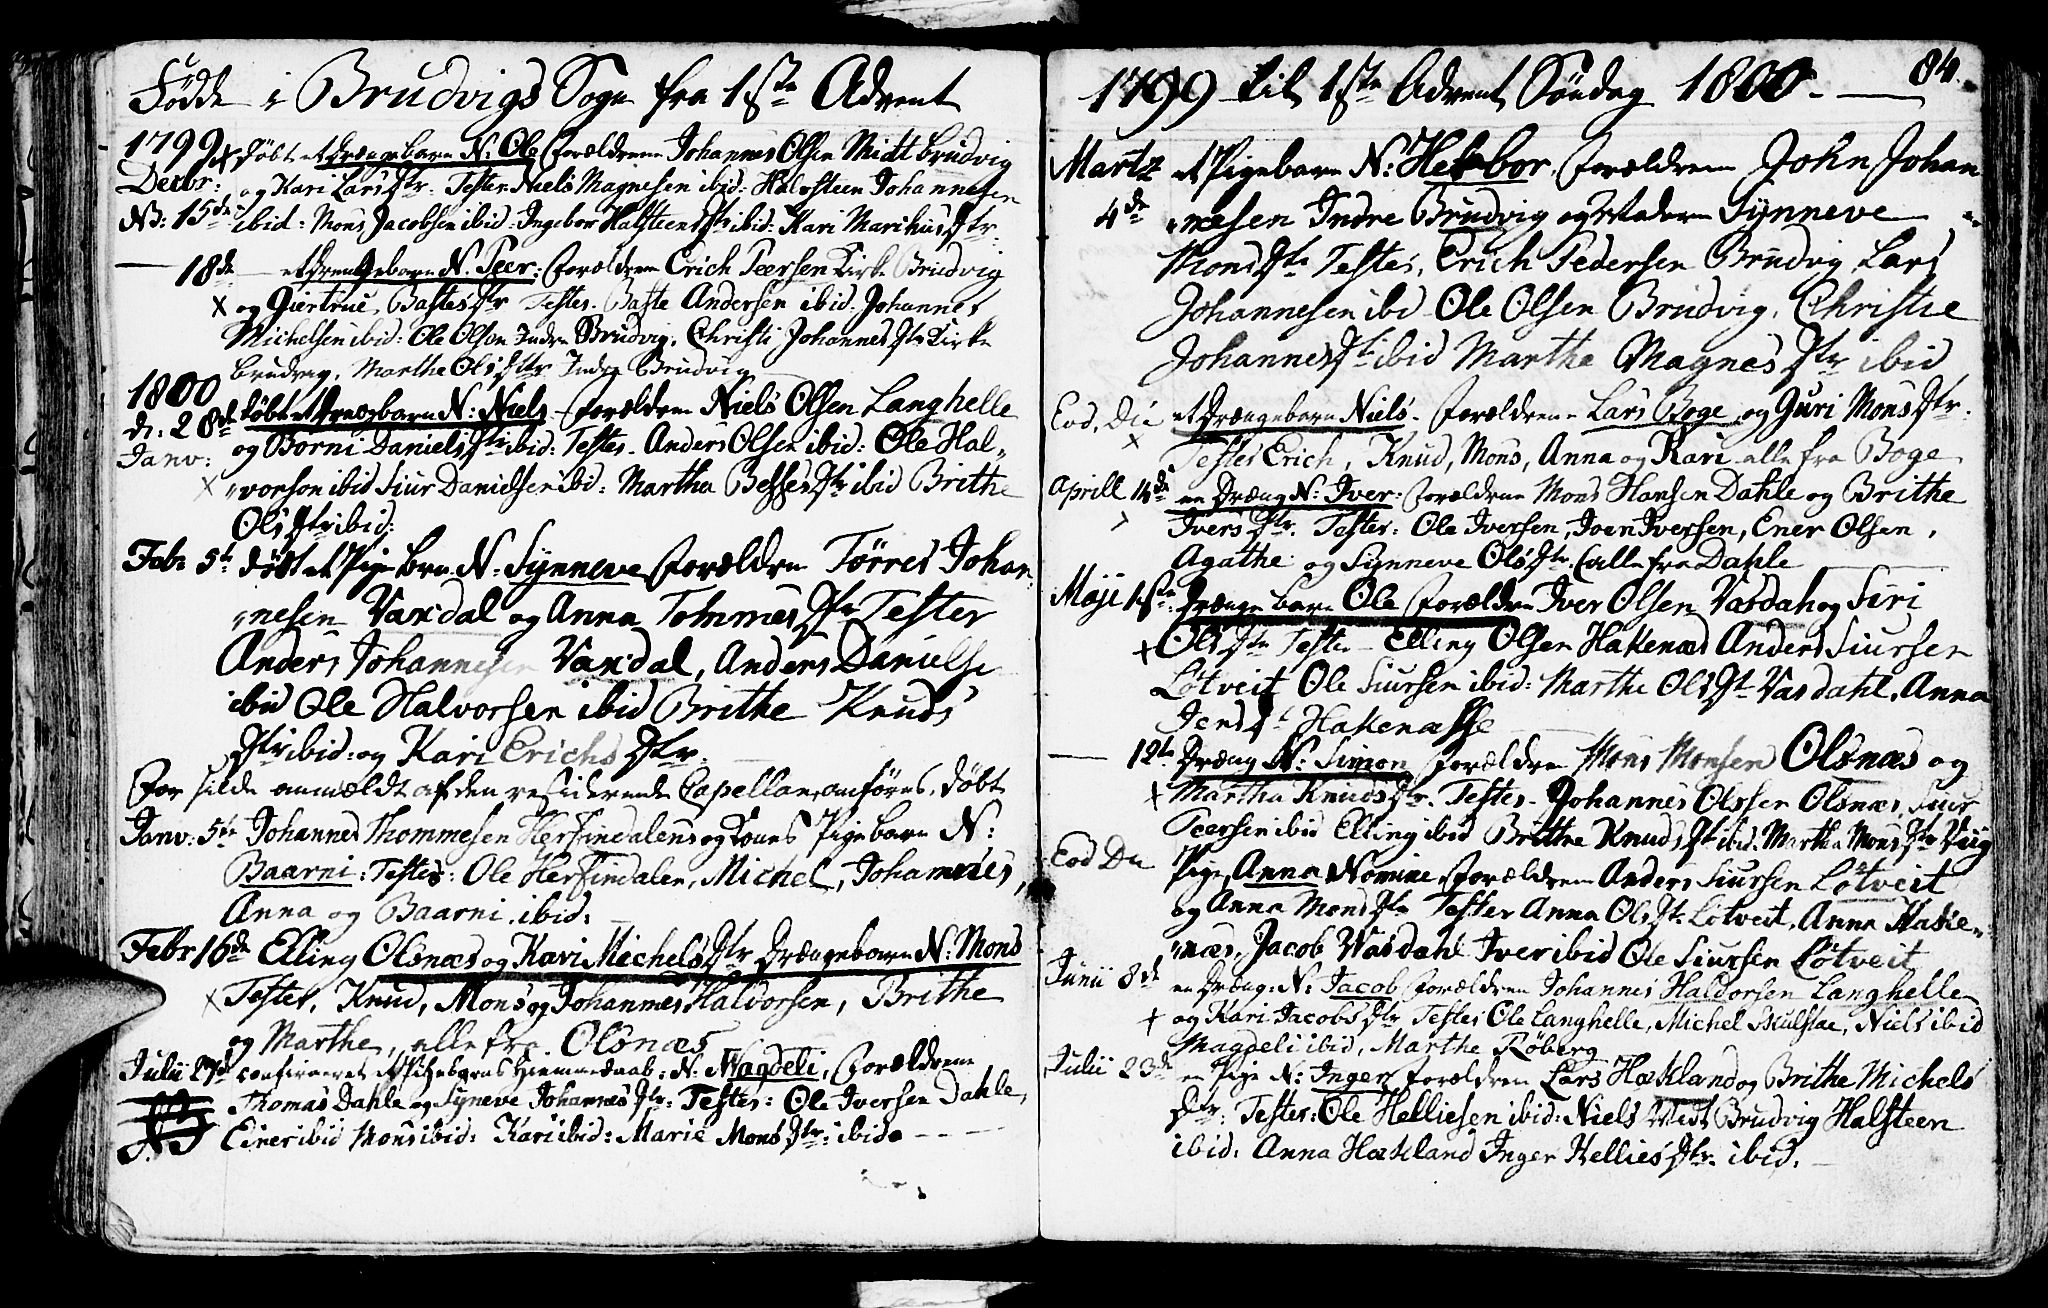 Födde i Brudvigs Sogn fra 1ste Advent
1799 x döbt et drængebarn N: Ole Forældrene Johannes Olsen Midt brudvig
Decbr: og Kari Lars Dtr. Testes Niels Magnesen ibid: Halvsteen Johannesen
N3: 15de ibid: Mons Jacobsen ibid: Ingebor Halsteens Dtr ibid: Kari Marihus Dtr.
— 18de — et drengebarn N. Peer: Forældrene Erich Peersen Kirke Brudvig
x og Giertrue Bastes Dtr Testes. Baste Andersen ibid: Johannes
Michelsen ibid: Ole Olson Indre Brudvig, Christi Johannes Dtr Kirke
brudvig. Marthe Ols Dtr Indre Brudvig
1800
d: 28de döbt et drængbarn N: Niels – Forældrene Niels Olsen Langhelle
Janv: og Borni Daniels Dtr ibid: Testes. Anders Olsen ibid: Ole Hal„
x „vorson ibid Siur Danielsen ibid: Martha Besses Dtr ibid Brithe
Ols Dtr ibid:
Febr 5te döbt et Pige brn N: Synneve Forældrene Törres Johan„
„nesen Vaxdal og Anna Tommes Dtr Testes
Anders Johannesen Vaxdal, Anders Danielse
ibid Ole Halvorsen ibid Brithe Knuds
Dtr ibid: og Kari Erichs Dtr.
For silde anmældt af den residerende Capellan, anföres, döbt
Janv: 5te Johannes Thommesen Herfindalens og Pigebarn N:
Baarni: Testes: Ole Herfindalen, Michel, Johannes,
Anna og Baarni ibid:
Febr 16de Elling Olsnæs og Kari Michels Dtr Drængebarn N: Mons
x Testes, Knud, Mons og Johannes Haldorsen, Brithe
og Marthe, alle fra Olsnæs
Julii 27de confirmeret et Pigebarns Hiemmedaab: N: Magdeli, Forældrene
Thomas Dahle og Syneve Johannes Dtr: Testes: Ole Iversen Dahle,
Einer ibid Mons ibid: Kari ibid: Marie Mons Dtr: ibid.
1799 til 1ste Advent Söndag 1800. — 84.
Martz et Pigebarn N: Herbor, Forældrene John Johan
4de „nesen Indre Brudvig og Moderen Synneve
Mons Dtr Testes, Erich Pedersen Brudvig Lars
Johannesen ibd Ole Olsen Brudvig, Christie
Johannes Dtr ibid Marthe Magnes Dtr ibid
Eod, Die et Drængebarn Niels. Forældrene Lars Boge og Guri Mons Dtr.
x Testes Erich, Knud, Mons, Anna og Kari alle fra Boge
Aprill 14de en Dræng N: Iver: Forældrene Mons Hansen Dahle og Brithe
Ivers Dtr. Testes: Ole Iversen, Joen Iversen, Ener Olsen,
Agathe og Synneve Ols Dtr. alle fra Dahle
Maji 1ste: Drænge barn Ole Forældrene Iver Olsen Vasdahl og Siri
x Ols Dtr Testes – Elling Olsen Hakenæs Anders Siursen
Lötveit Ole Siursen ibid: Marthe Ols Dtr Vasdahl, Anna
Jens Dtr Hakenæsse
— 12te Dræng N: Simon Forældrene Mons Monsen Olsnæs og
x Martha Knuds Dtr. Testes – Johannes Olssen Olsnæs, Siur
Peersen ibid Elling ibid Brithe Knuds Dtr ibid. Martha Mons Dtr Viig
Eod Die Pige Anna Nomine Forældrene Anders Siursen Lötveit
og Anna Mons Dtr Testes Anna Ols Dtr Lotveit, Anna Hake„
„næs, Jacob Wasdahl Iver ibid Ole Siursen Lötveit
Junii 8de en Dræng: N: Jacob Forældrene Johannes Haldorsen Langhelle
x og Kari Jacobs Dtr Testes Ole Langhelle, Michel Skulstae, Niels ibid
Magdeli ibid, Marthe Røberg
Julii 23de en Pige N: Inger Forældrene Lars Hækland og Brithe Michels
Dtr: Testes: Ole Helliesen ibid: Niels Midt Brudvig Halsteen
ibid: Anna Hækland Inger Hellies Dtr. ibid.